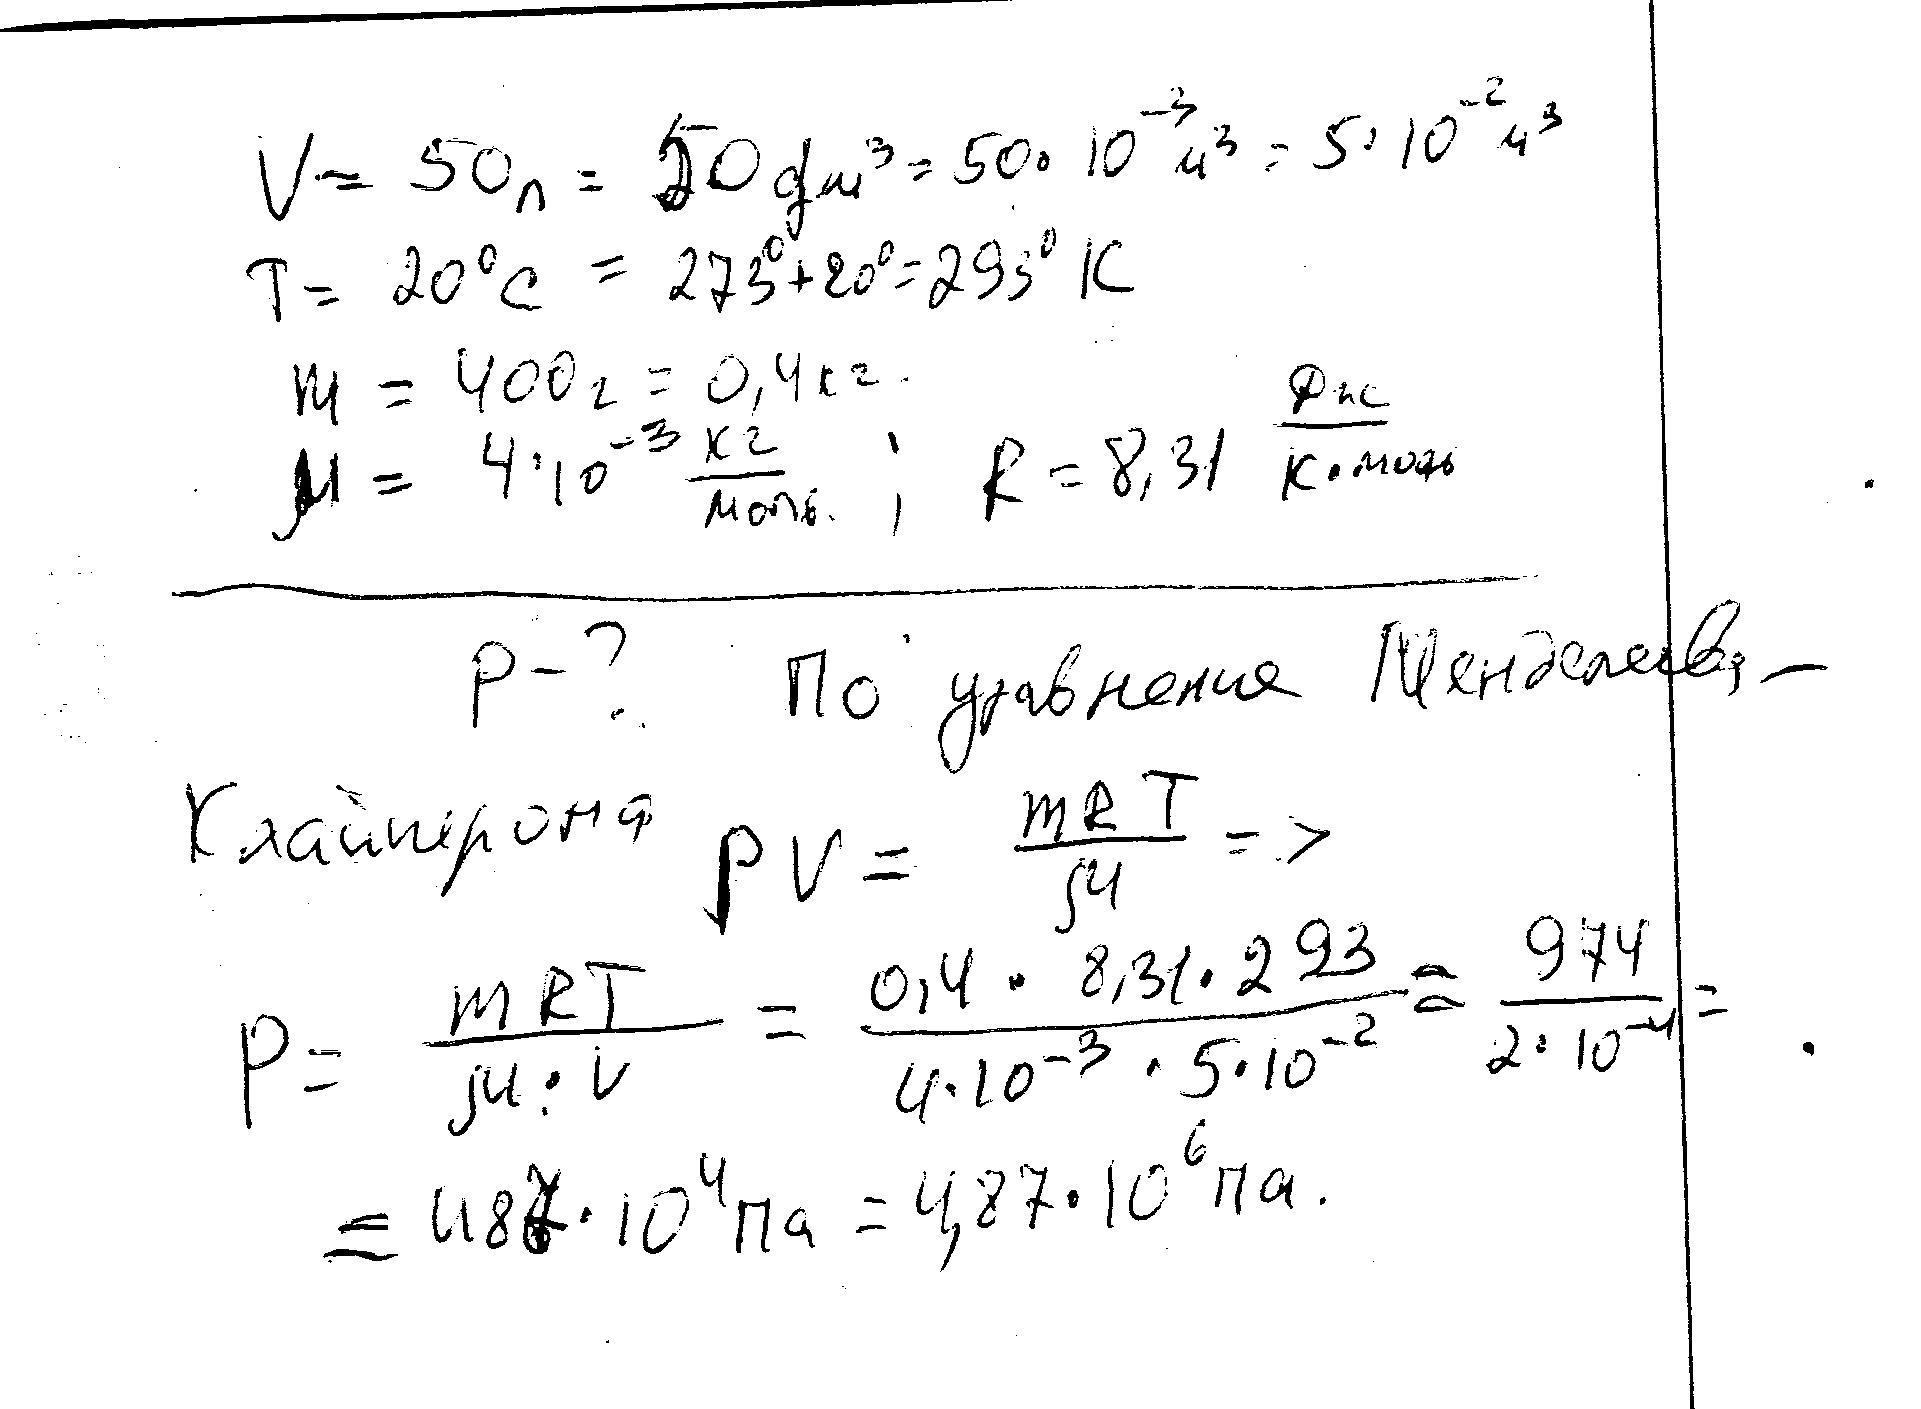 V = 50л = 50дм³ = 50·10⁻³м³ = 5·10⁻²м³
T = 20⁰C = 273⁰+20⁰=293⁰K
m = 400г = 0,4кг.
μ = 4·10⁻³ кг/моль. ; R = 8,31 Дж/К·моль
P-? По уравнение Менделеева-
Клайперона pV = mRT/μ =>
P = mRT/μ·V = 0,4·8,31·293/4·10⁻³·5·10⁻² = 974/2·10⁻⁴ =
= 487·10⁴Па = 4,87·10⁶Па.